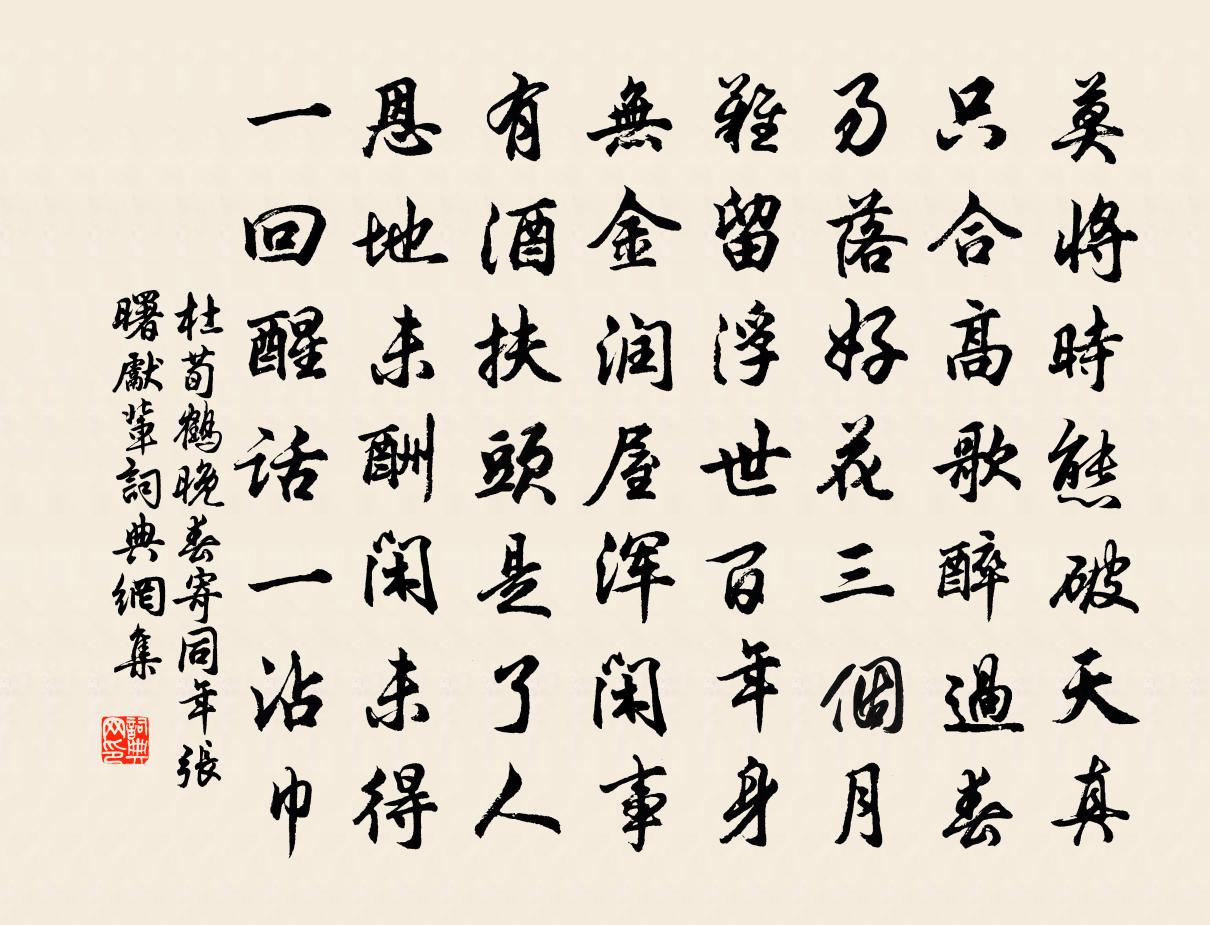 莫將時態破天真
只合高歌醉過春
易落好花三個月
難留浮世百年身
無金润屋渾閑事
有酒扶頭是了人
恩地未酬閑未得
一回醒話一沾巾
杜荀鶴晚春寄同年張
曙獻輩詞典網集
詞典
网印